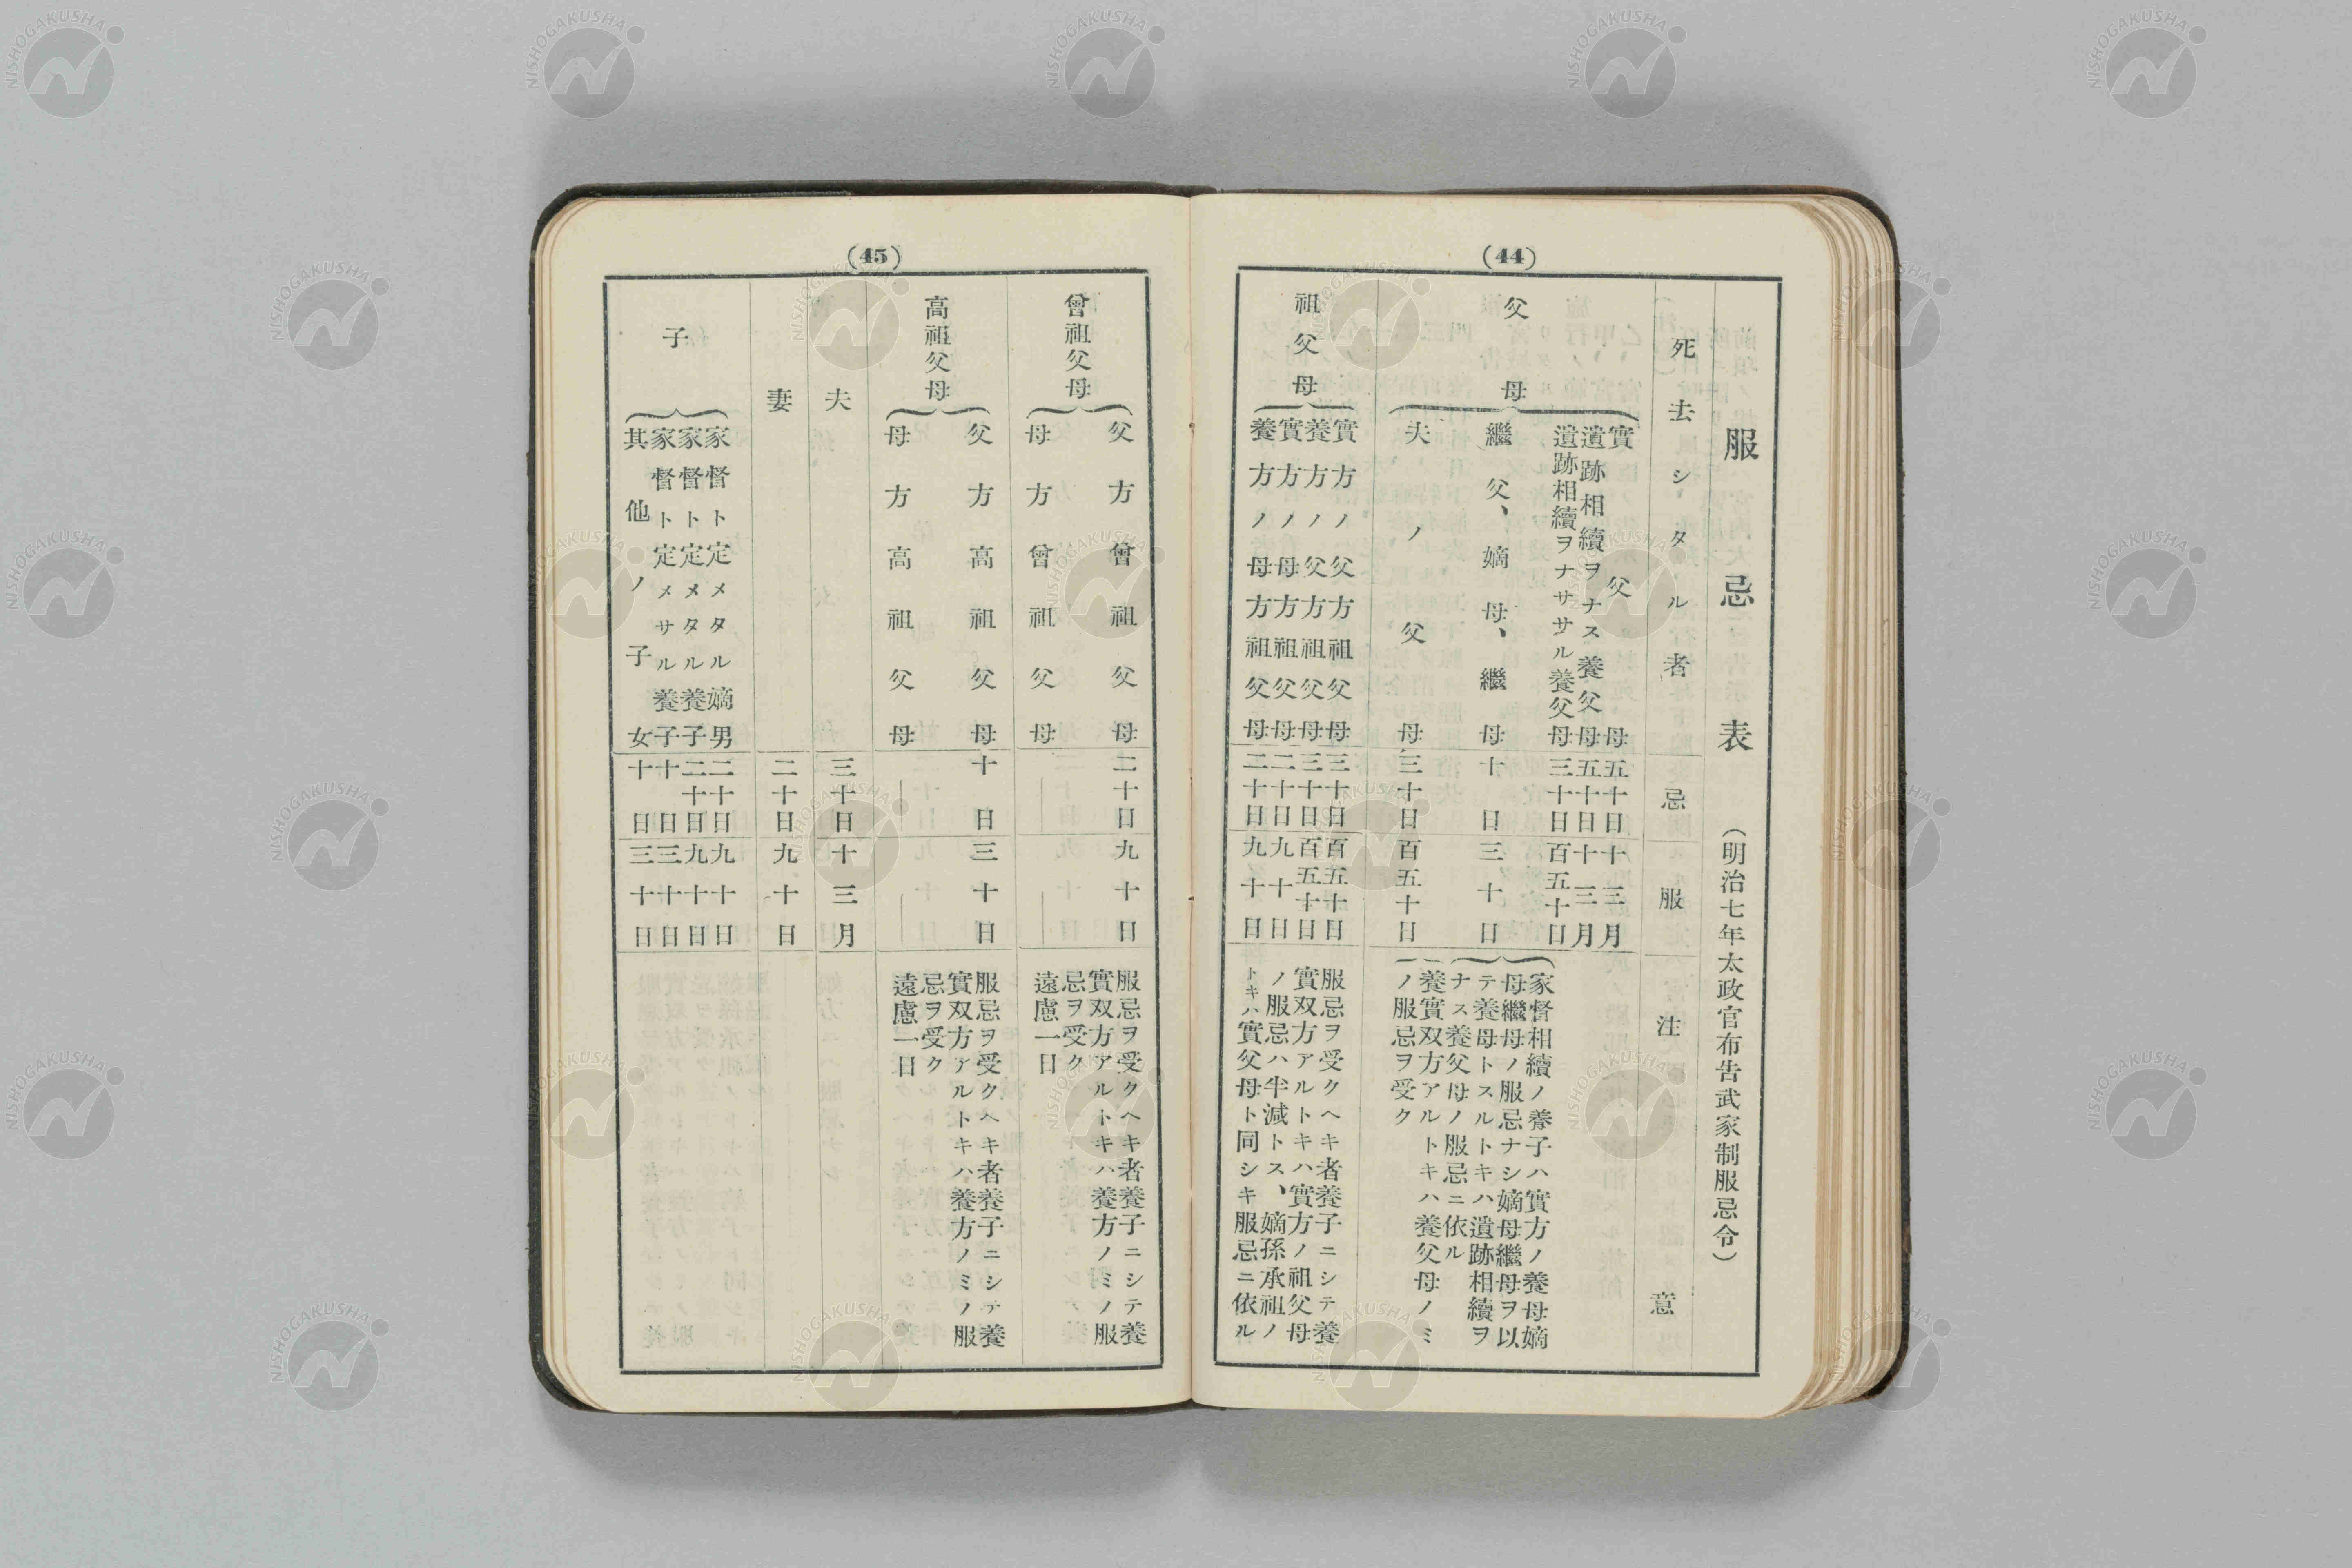 (44)
服忌表 (明治七年太政官布告武家制服忌令)
死去シタル者 忌 服 注意
父母
實父母 五十日 十三月
遺跡相續ヲナス養父母 五十日 十三月
遺跡相續ヲナササル養父母 三十日 百五十日
繼父、嫡母、繼母 十日 三十日
夫ノ父母 三十日 百五十日
家督相續ノ養子ハ實方ノ養母嫡
母繼母ノ服忌ナシ嫡母繼母ヲ以
テ養母トスルトキハ遺跡相續ヲ
ナス養父母ノ服忌ニ依ル
養實双方アルトキハ養父母ノミ
ノ服忌ヲ受ク
祖父母
實方ノ父方祖父母 三十日 百五十日
養方ノ父方祖父母 三十日 百五十日
實方ノ母方祖父母 二十日 九十日
養方ノ母方祖父母 二十日 九十日
服忌ヲ受クヘキ者養子ニシテ養
實双方アルトキハ實方ノ祖父母
ノ服忌ハ半減トス、嫡孫承祖ノ
トキハ實父母ト同シキ服忌ニ依ル
(45)
曾祖父母
父方曾祖父母 二十日 九十日
母方曾祖父母 ― ―
服忌ヲ受クヘキ者養子ニシテ養
實双方アルトキハ養方ノミノ服
忌ヲ受ク
遠慮一日
高祖父母
父方高祖父母 十日 三十日
母方高祖父母 ― ―
服忌ヲ受クヘキ者養子ニシテ養
實双方アルトキハ養方ノミノ服
忌ヲ受ク
遠慮一日
夫 三十日 十三月
妻 二十日 九十日
子
家督ト定メタル嫡男 二十日 九十日
家督ト定メタル養子 二十日 九十日
家督ト定メサル養子 十日 三十日
其他ノ子女 十日 三十日
NISHOGAKUSHA